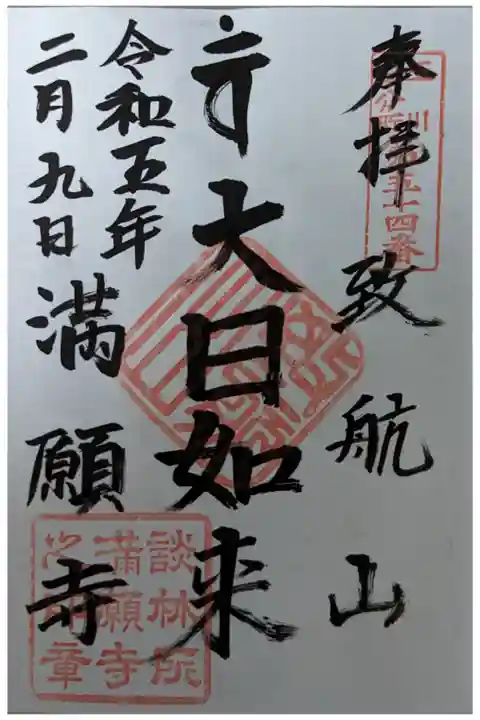 奉拝
致航山
大日如来
令和五年
二月九日
満願寺
五十四番
談林院
満願寺
章